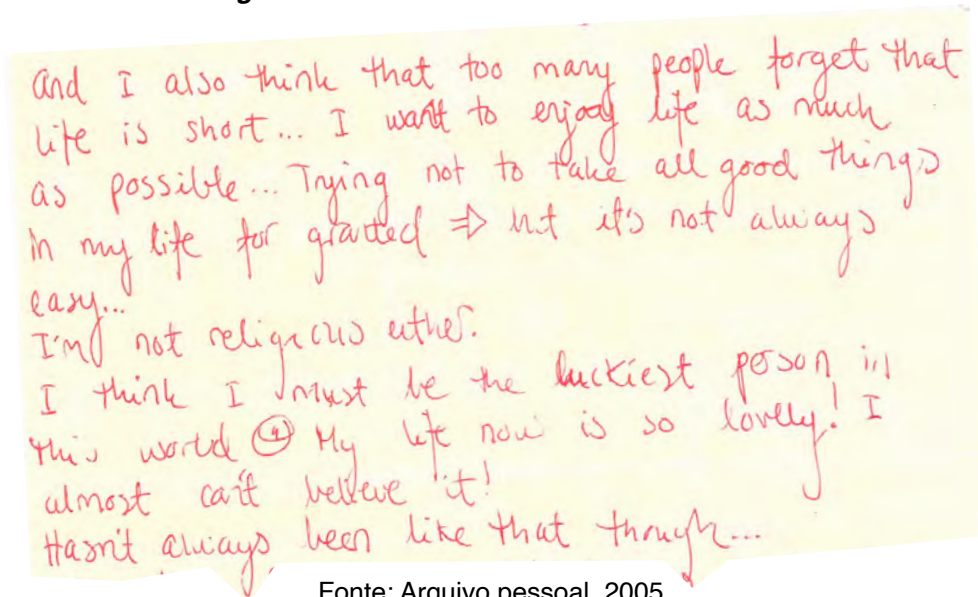 and I also think that too many people forget that
life is short... I want to enjoy life as much
as possible... Trying not to take all good things
in my life for granted ⇒ but it's not always
easy...
I'm not religious either.
I think I must be the luckiest person in
this world ☺ My life now is so lovely! I
almost can't believe it!
Hasn't always been like that though...
Fonte: Arquivo pessoal, 2005